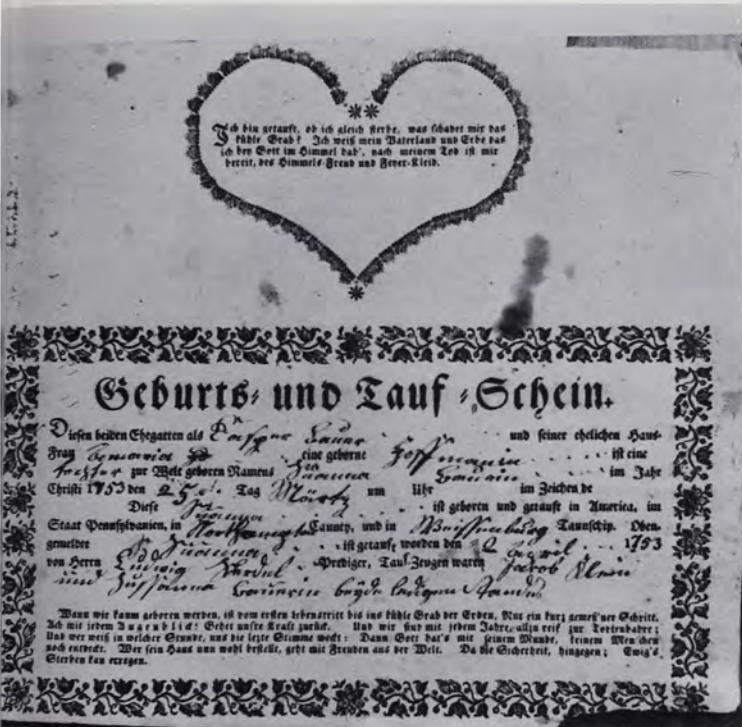 Ich bin getauft, ob ich gleich sterbe, was schadet mir das
kühle Grab? Ich weiß mein Vaterland und Erbe das
ich bey Gott im Himmel hab', nach meinem Tod ist mir
bereit, des Himmels-Freud und Feyer-Kleid.
Geburts- und Tauf-Schein.
Diesen beiden Ehegatten als Casper Bauer und seiner ehelichen Haus-
Frau eine geborne Hoffmanin ist eine
tochter zur Welt geboren Namens Susanna Bauerin im Jahr
Christi 1753 den 25 Tag Märtz um Uhr im Zeichen de
Diese Susanna ist geboren und getauft in America, im
Staat Pennsylvanien, in Northampton Caunty, und in Weissenburg Taunschip. Oben-
gemeldet Susanna ist getauft worden den 2 April 1753
von Herrn Ludwig Prediger, Tauf-Zeugen waren Jacob Klein
und Sussanna Bauerin beyde ledigen Standes
Wann wir kaum geboren werden, ist vom ersten lebenstritt bis ins kühle Grab der Erden, Nur ein kurz gemeß'ner Schritt.
Ach mit jedem Augenblick! Gehet unsre Kraft zurück. Und wir sind mit jedem Jahre, allzu reif zur Todtenbahre;
Und wer weiß in welcher Stunde, uns die lezte Stimme weckt: Dann Gott hat's mit seinem Munde, keinem Menschen
noch entdeckt. Wer sein Haus nun wohl bestellt, geht mit Freuden aus der Welt. Da die Sicherheit, hingegen; Ewig's
Sterben kan erregen.